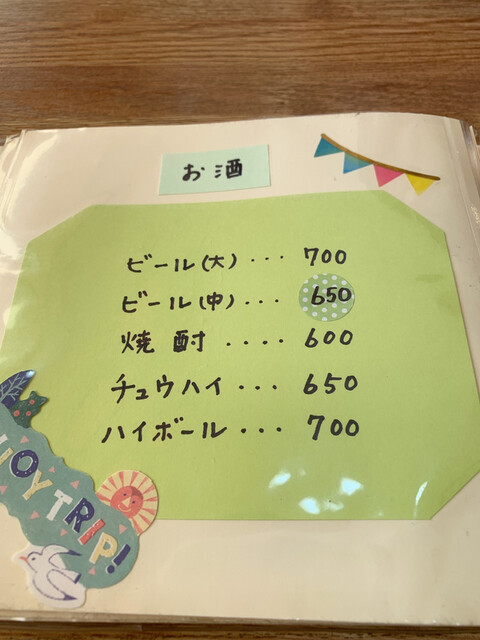 お酒
ビール(大)・・・700
ビール(中)・・・650
焼酎・・・・600
チュウハイ・・・650
ハイボール・・・700
JOY TRIP!